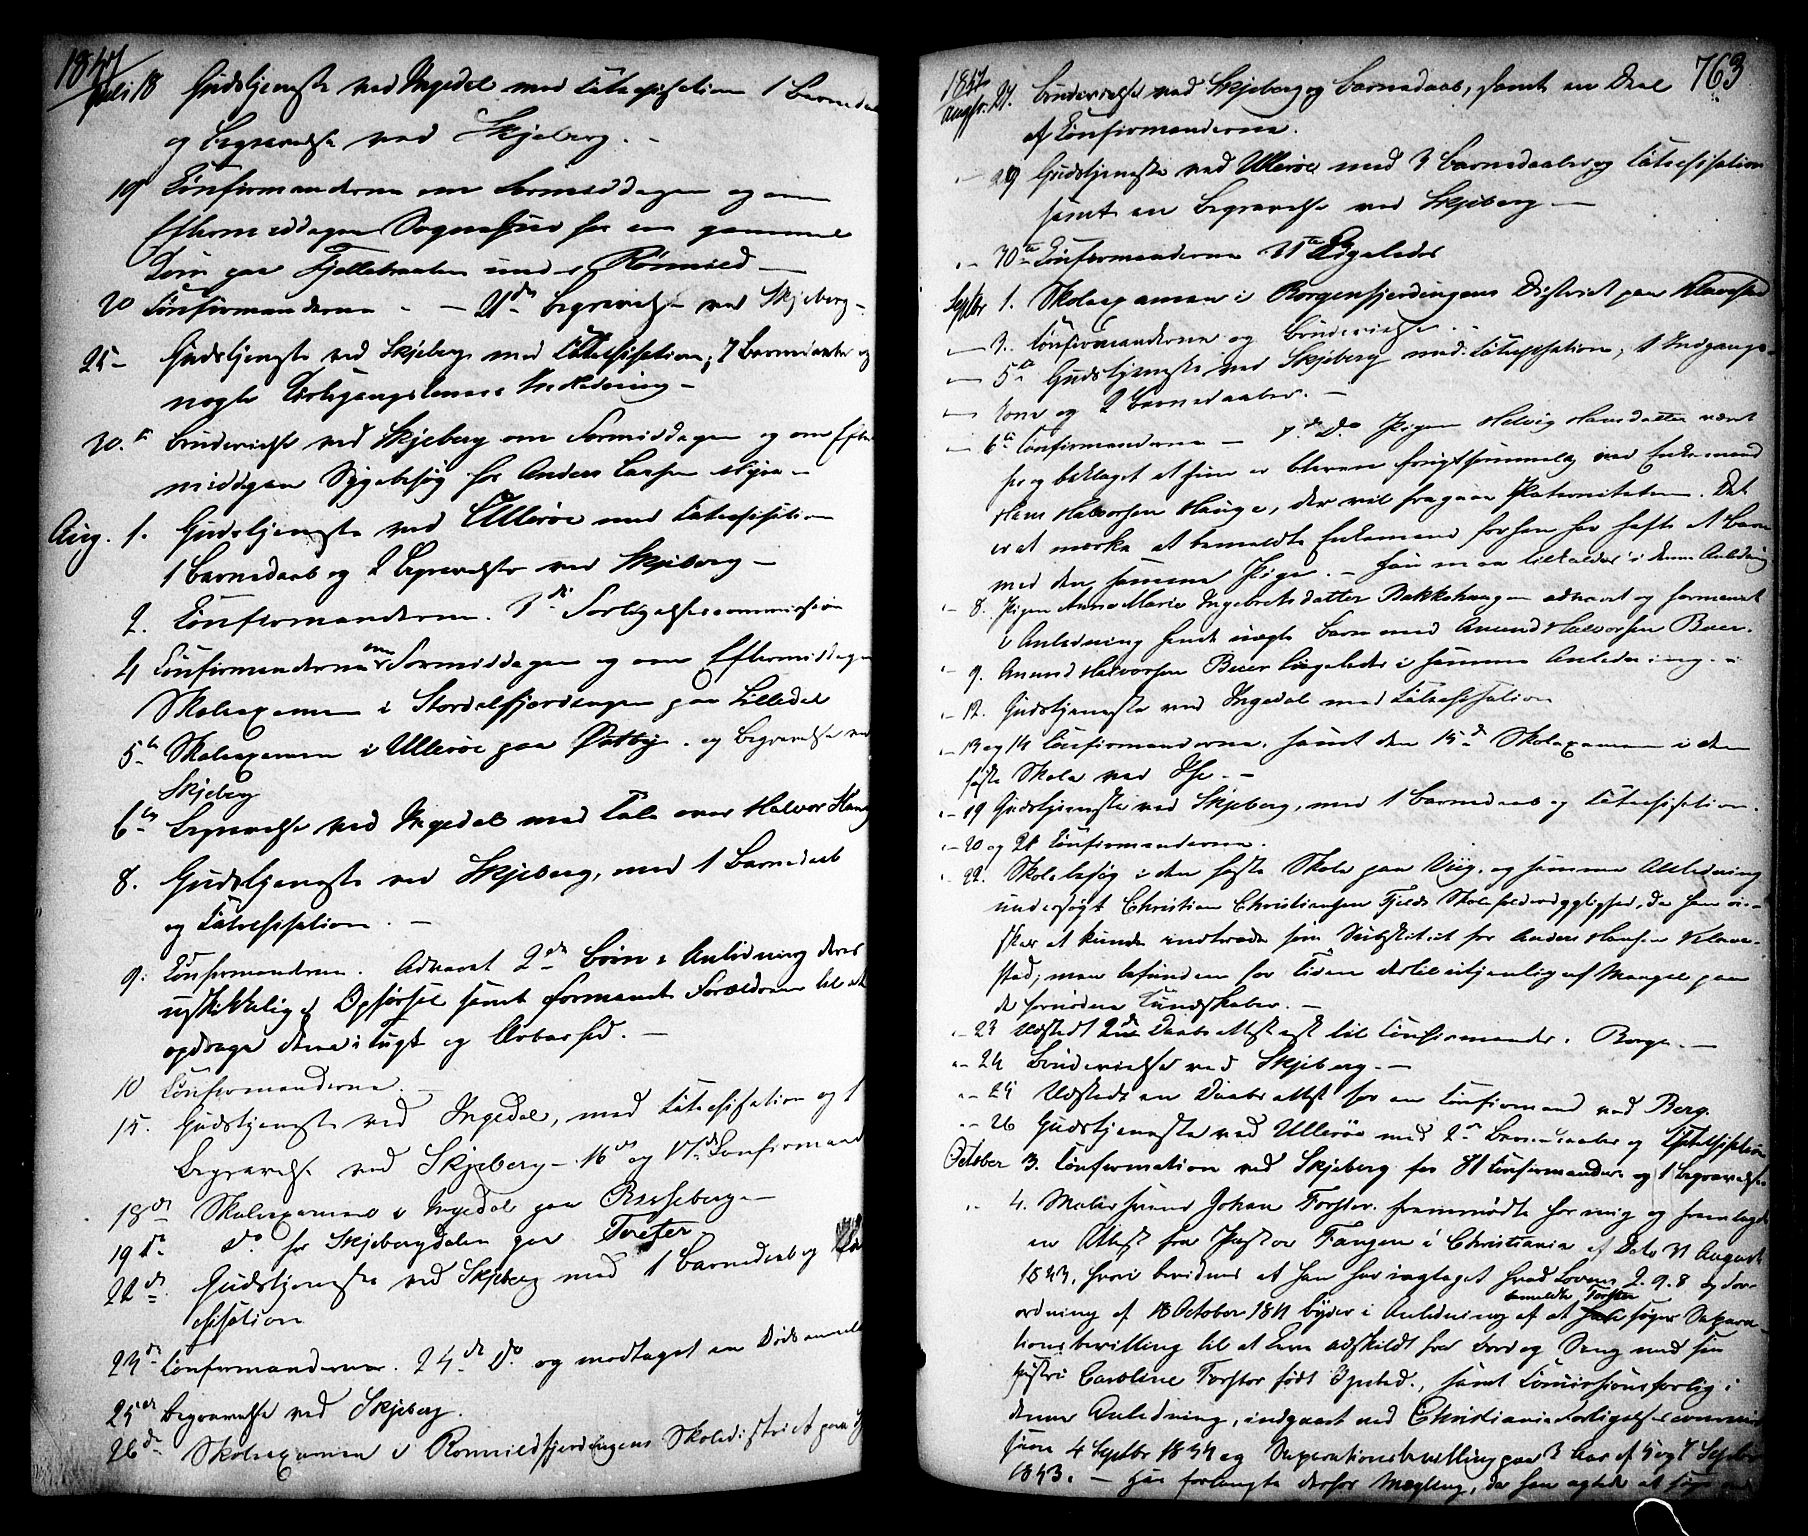 1847
Juli 18 Gudstjeneste ved Ingedal med Catechisation 1 Barnedaab
og Begravelse ved Skjeberg. -
19 Confirmanderne om Formiddagen og om
Eftermiddagen Sognebud for en gammel
Kone paa Fjellebraaten under Rönnild -
20 Confirmanderne - - 21de Begravelse ved Skjeberg -
25 - Gudstjeneste ved Skjeberg med Catechisation, 7 Barnedaabe og
nogle Kirkegangskoners Indledning -
30.te Brudevielse ved Skjeberg om Formiddagen og om Efter
middagen Sygebesøg for Anders Larsen Myra -
Aug. 1. Gudstjeneste ved Ullerøe med Catechisation
1 Barnedaab og 2 Begravelser ved Skjeberg -
2. Confirmanderne. 3de Forligelsescommission
4 Confirmanderne om Formiddagen og om Eftermiddagen
Skoleexamen i Stordalfjerdingen paa Lilledal
5te Skoleexamen i Ullerøe paa . og Begravelse ved
Skjeberg
6te Begravelse ved Ingedal med Tale over Halvor Haug
8. Gudstjeneste ved Skjeberg, med 1 Barnedaab
og Catechisation. -
9. Confirmanderne. Advaret 2de Børn i Anledning deres
uskikkelige Opførsel samt formanet Forældrene til at
opdrage dem i Tugt og Ærbarhed. -
10 Confirmanderne. -
15. Gudstjeneste ved Ingedal, med Catechisation og 1
Begravelse ved Skjeberg - 16de og 17de Confirmand
18de Skoleexamen i Ingedal paa Buseberg -
19de Do for Skjebergdalen paa
22de Gudstjeneste ved Skjeberg med 1 Barnedaab og
chisation
23de Confirmanderne. 24de Do og modtaget en Dødsanmel
25de Begravelse ved Skjeberg.
26de Skoleexamen i Rönnildfjerdingens Skoledistrict paa
763
1847
August. 27. Brudevielse ved Skjeberg og Barnedaab, samt en Deel
af Confirmanderne.
- 29 Gudstjeneste ved Ullerøe med 3 Barnedaabe og Catechisation
samt en Begravelse ved Skjeberg -
- 30te Confirmanderne 31te Ligeledes
Septbr 1. Skoleexamen i Borgenfjerdingens District paa Klavestad
- 3. Confirmanderne og Brudevielse. -
- 5te Gudstjeneste ved Skjeberg med Catechisation, 1 Indgangs-
- kone og 2 Barnedaaber. -
- 6te Confirmanderne - 7de Do Pigen Helvig Hansdatter været
her og beklaget at hun er bleven frugtsommelig ved Enkemand
Hans Halvorsen Hauge, der vil fragaae Paterniteten. Det
er at mærke at bemeldte Enkemand forhen har havt et Barn
med den samme Pige. - Han maa tilkaldes i denne Anledning
- 8. Pigen Anne Marie Ingebretsdatter Bakkehaugen advaret og formanet
i Anledning hendes uægte Barn med Amund Halvorsen Buer.
- 9. Amund Halvorsen Buer ligeledes i samme Anledning. -
- 12. Gudstjeneste ved Ingedal med Catechisation
- 13 og 14 Confirmanderne, samt den 15de Skoleexamen i den
faste Skole ved Ise. -
- 19 Gudstjeneste ved Skjeberg, med 1 Barnedaab og Catechisation.
- 20 og 21 Confirmanderne.
- 22. Skolebesøg i den faste Skole paa Viig, og samme Anledning
undersøgt Christian Christiansen Fjelds Skoleholderdygtighed, da han øn-
sker at kunde indtræde som Substitut for Anders Hansen Klave-
stad, men befunden for Tiden dertil utjenlig af Mangel paa
de fornødne Kundskaber. -
- 23 Udstedt 2de Daabsattester til Confirmander i Borge. -
- 24 Brudevielse ved Skjeberg. -
- 25 Udstedt en Daabsattest for en Confirmand ved Berg.
- 26 Gudstjeneste ved Ullerøe med 2de Barnedaaber og Catechisation
October 3. Confirmation ved Skjeberg for 81 Confirmander og 1 Begravelse
- 4. Malersvend Johan Forster fremmødte for mig og fremlagde
en Attest fra Pastor Fangen i Christiania af Dato 31 August
1843, hvori bevidnes at han har iagttaget hvad Lovens 2. 9. 8 og For-
ordning af 18 October 1811 byder i Anledning af at bemeldte Forster søger Separa-
tionsbevilling til at leve adskildt fra Bord og Seng med sin
Hustru Caroline Forster født Opsted., samt Commissionsforlig i
denne Anledning, indgaaet ved Christiania Forligelsescommis
sion 4 Septbr 1843 og Separationsbevilling paa 3 Aar af 5 og 7 Septbr
1843. - Han forlangte derfor Mægling, da han agtede at søge